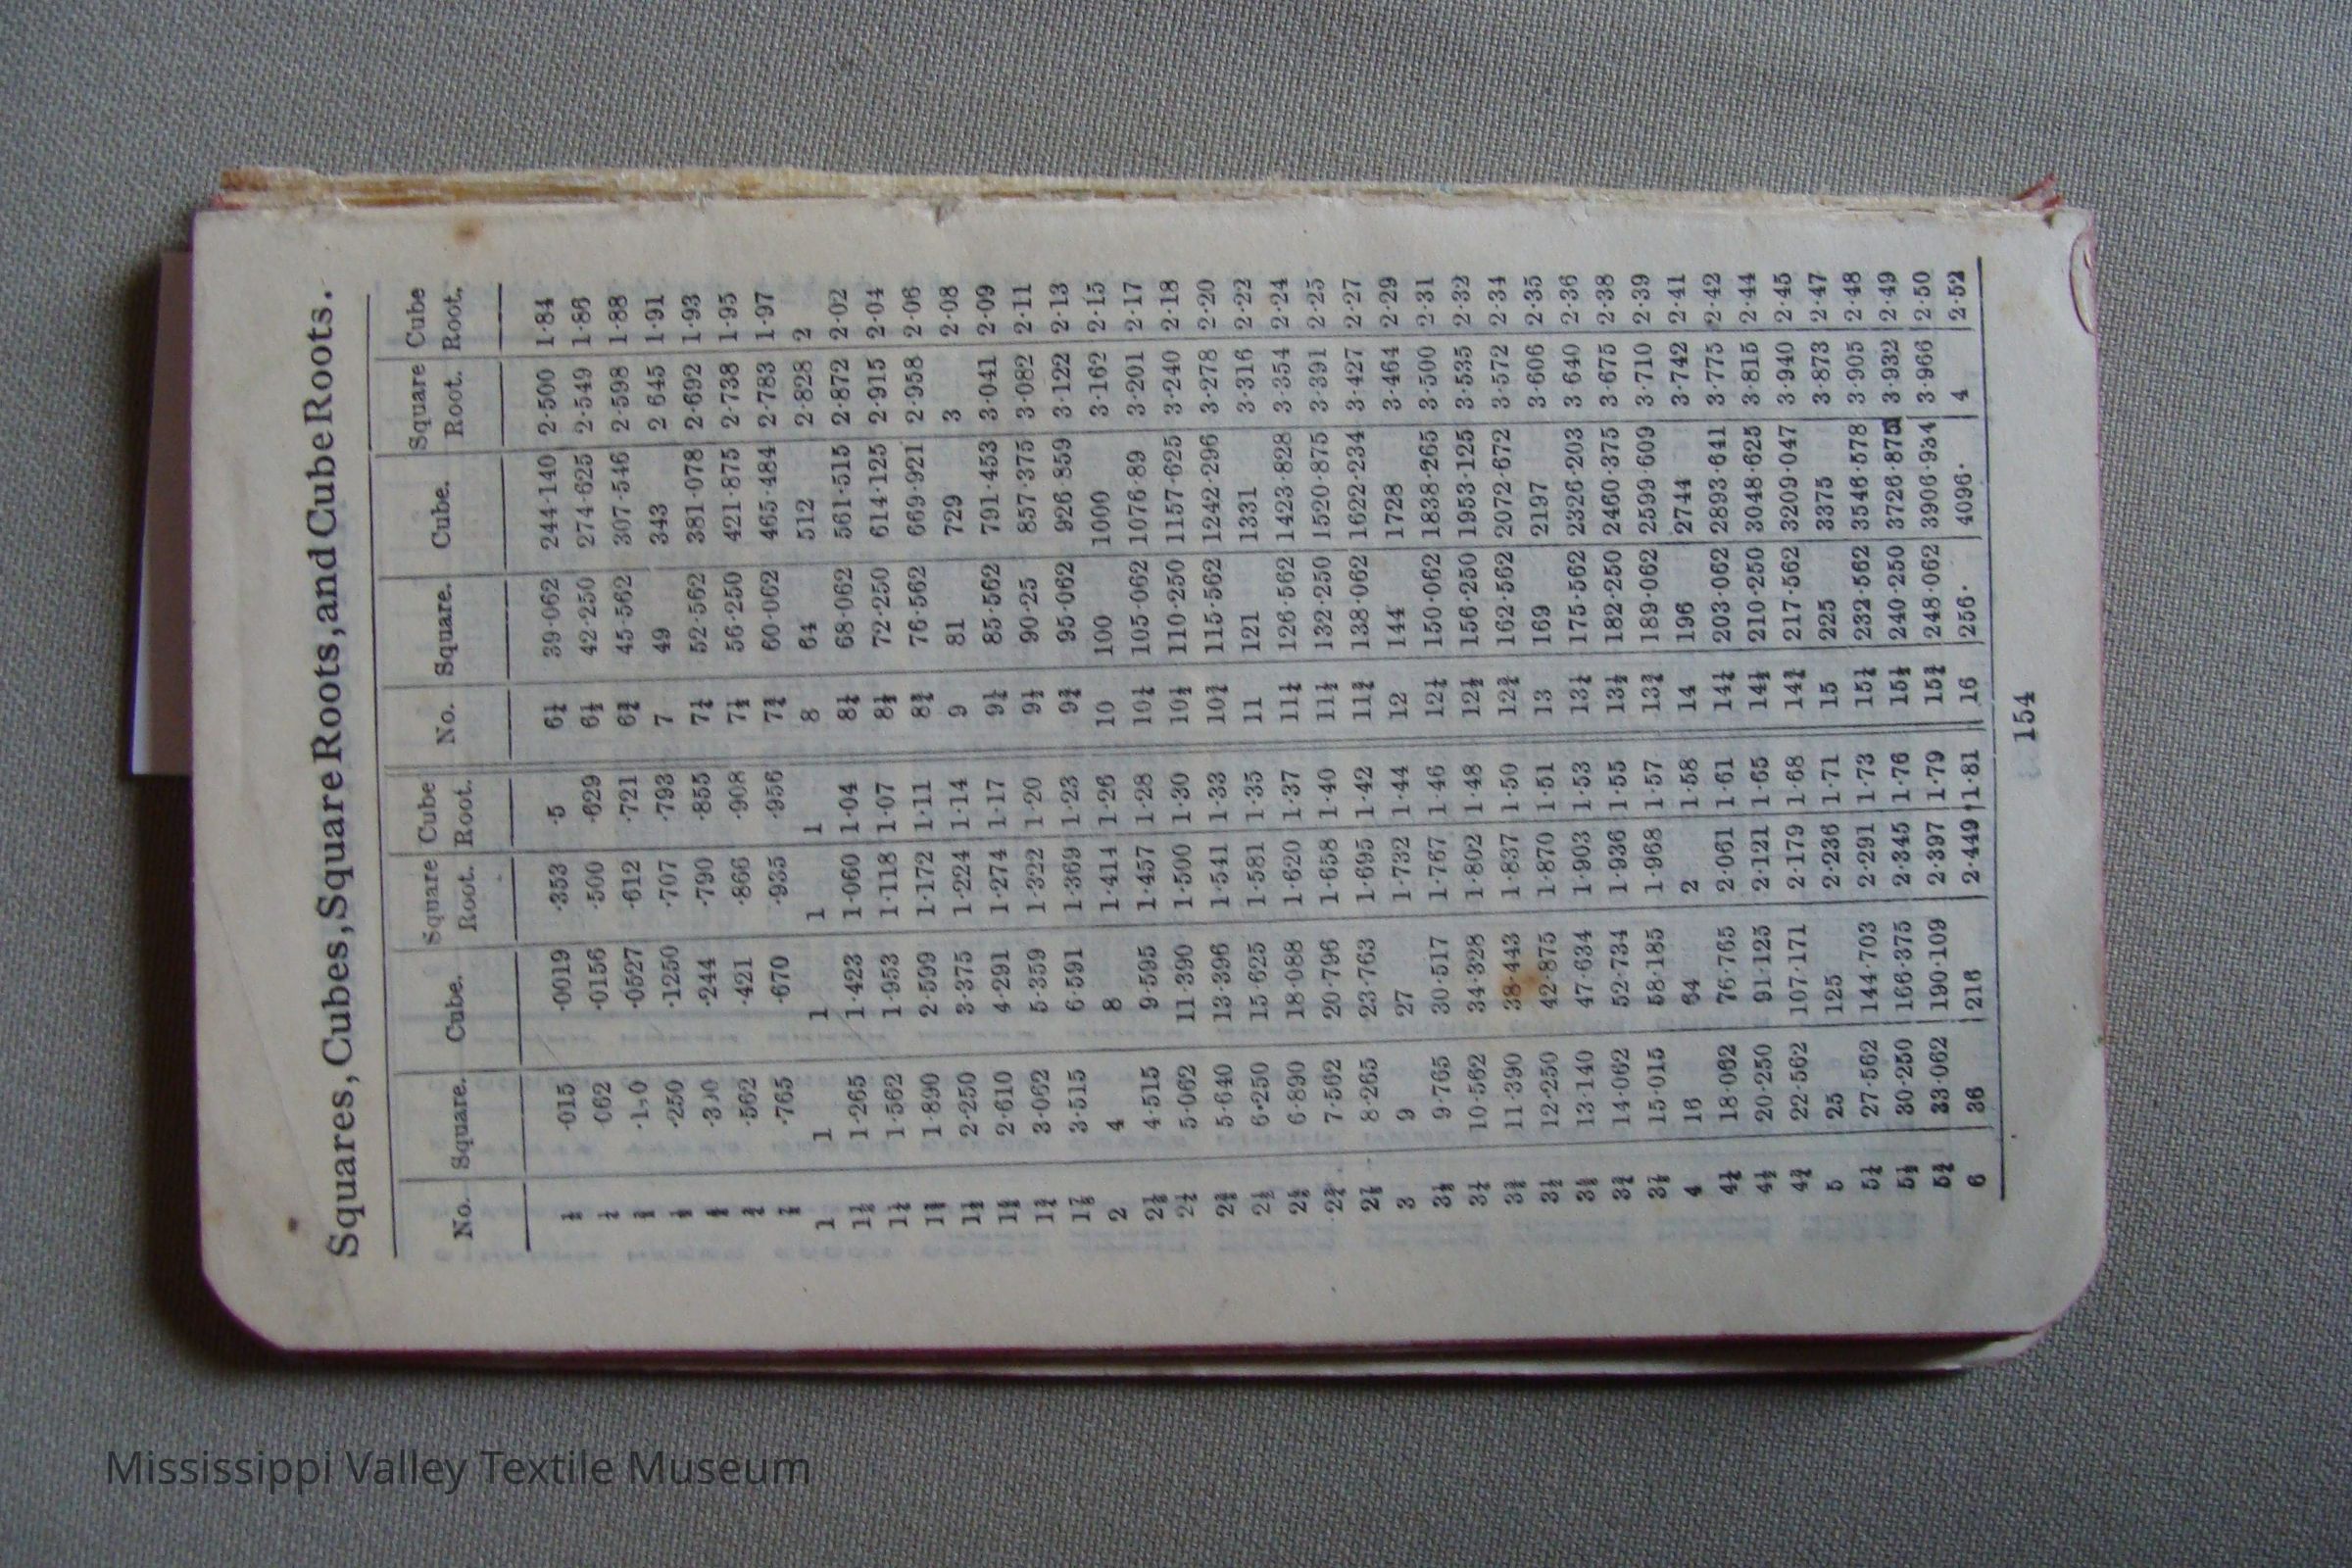 Squares, Cubes, Square Roots, and Cube Roots.
No. Square. Cube. Square Root. Cube Root. No. Square. Cube. Square Root. Cube Root.
⅛ ·015 ·0019 ·353 ·5 6¼ 39·062 244·140 2·500 1·84
¼ 062 ·0156 ·500 ·629 6½ 42·250 274·625 2·549 1·86
⅜ ·0527 ·612 ·721 6¾ 45·562 307·546 2·598 1·88
½ ·250 ·1250 ·707 ·793 7 49 343 2 645 1·91
⅝ ·244 ·790 ·855 7¼ 52·562 381·078 2·692 1·93
¾ ·562 ·421 ·866 ·908 7½ 56·250 421·875 2·738 1·95
⅞ ·765 ·670 ·935 ·956 7¾ 60·062 465·484 2·783 1·97
1 1 1 1 1 8 64 512 2·828 2
1⅛ 1·265 1·423 1·060 1·04 8¼ 68·062 561·515 2·872 2·02
1¼ 1·562 1·953 1·118 1·07 8½ 72·250 614·125 2·915 2·04
1⅜ 1·890 2·599 1·172 1·11 8¾ 76·562 669·921 2·958 2·06
1½ 2·250 3·375 1·224 1·14 9 81 729 3 2·08
1⅝ 2·610 4·291 1·274 1·17 9¼ 85·562 791·453 3·041 2·09
1¾ 3·062 5·359 1·322 1·20 9½ 90·25 857·375 3·082 2·11
1⅞ 3·515 6·591 1·369 1·23 9¾ 95·062 926·859 3·122 2·13
2 4 8 1·414 1·26 10 100 1000 3·162 2·15
2⅛ 4·515 9·595 1·457 1·28 10¼ 105·062 1076·89 3·201 2·17
2¼ 5·062 11·390 1·500 1·30 10½ 110·250 1157·625 3·240 2·18
2⅜ 5·640 13·396 1·541 1·33 10¾ 115·562 1242·296 3·278 2·20
2½ 6·250 15·625 1·581 1·35 11 121 1331 3·316 2·22
2⅝ 6·890 18·088 1·620 1·37 11¼ 126·562 1423·828 3·354 2·24
2¾ 7·562 20·796 1·658 1·40 11½ 132·250 1520·875 3·391 2·25
2⅞ 8·265 23·763 1·695 1·42 11¾ 138·062 1622·234 3·427 2·27
3 9 27 1·732 1·44 12 144 1728 3·464 2·29
3⅛ 9·765 30·517 1·767 1·46 12¼ 150·062 1838·265 3·500 2·31
3¼ 10·562 34·328 1·802 1·48 12½ 156·250 1953·125 3·535 2·32
3⅜ 11·390 38·443 1·837 1·50 12¾ 162·562 2072·672 3·572 2·34
3½ 12·250 42·875 1·870 1·51 13 169 2197 3·606 2·35
3⅝ 13·140 47·634 1·903 1·53 13¼ 175·562 2326·203 3 640 2·36
3¾ 14·062 52·734 1·936 1·55 13½ 182·250 2460·375 3·675 2·38
3⅞ 15·015 58·185 1·968 1·57 13¾ 189·062 2599·609 3·710 2·39
4 16 64 2 1·58 14 196 2744 3·742 2·41
4¼ 18·062 76·765 2·061 1·61 14¼ 203·062 2893·641 3·775 2·42
4½ 20·250 91·125 2·121 1·65 14½ 210·250 3048·625 3·815 2·44
4¾ 22·562 107·171 2·179 1·68 14¾ 217·562 3209·047 3·940 2·45
5 25 125 2·236 1·71 15 225 3375 3·873 2·47
5¼ 27·562 144·703 2·291 1·73 15¼ 232·562 3546·578 3·905 2·48
5½ 30·250 166·375 2·345 1·76 15½ 240·250 3726·875 3·932 2·49
5¾ 33·062 190·109 2·397 1·79 15¾ 248·062 3906·934 3·966 2·50
6 36 216 2·449 1·81 16 256· 4096· 4 2·52
154
Mississippi Valley Textile Museum